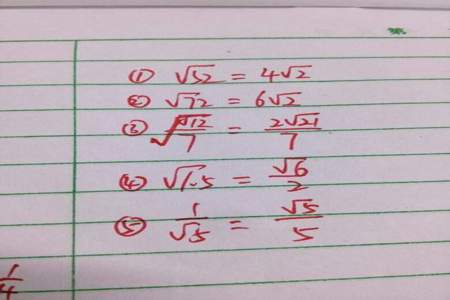 ① √32 = 4√2
② √72 = 6√2
③ √(12/7) = 2√21/7
④ √1.5 = √6/2
⑤ 1/√5 = √5/5
1/4